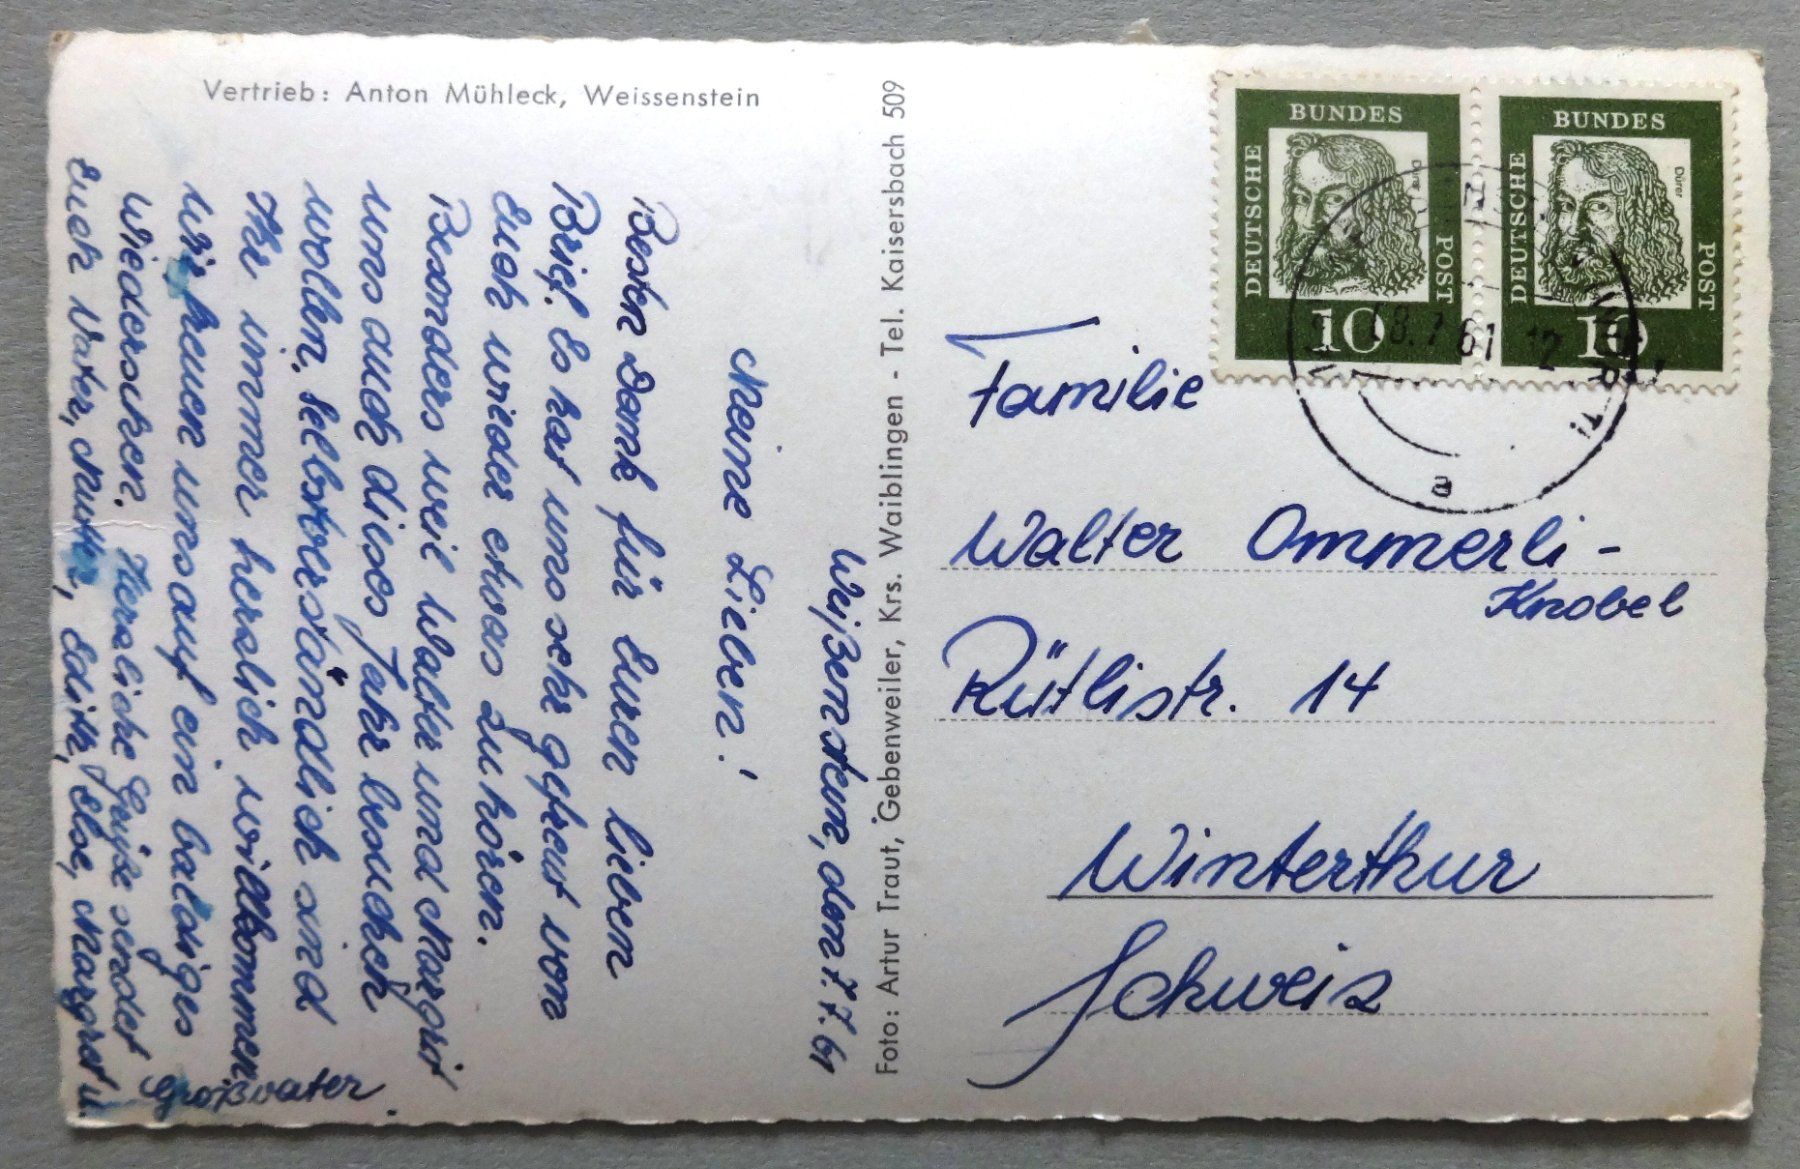 Vertrieb: Anton Mühleck, Weissenstein
Foto: Artur Traut, Gebenweiler, Krs. Waiblingen - Tel. Kaisersbach 509
Weißenstein, den 7.7.61
Meine Lieben!
Besten Dank für Euren lieben
Brief. Es hat uns sehr gefreut von
Euch wieder etwas zu hören.
Besonders weil Walter und Margrit
uns auch dieses Jahr besuchen
wollen. Selbstverständlich sind
Ihr immer herzlich willkommen.
Wir freuen uns auf ein baldiges
Wiedersehen. Herzliche Grüße sendet
Euch Vater, Mutter, Edith, Else, Margret u.
Großvater.
BUNDES
DEUTSCHE
POST
Dürer
10
BUNDES
DEUTSCHE
POST
Dürer
10
8.7.61-12
a
Familie
Walter Ommerli-
Knobel
Rütlistr. 14
Winterthur
Schweiz